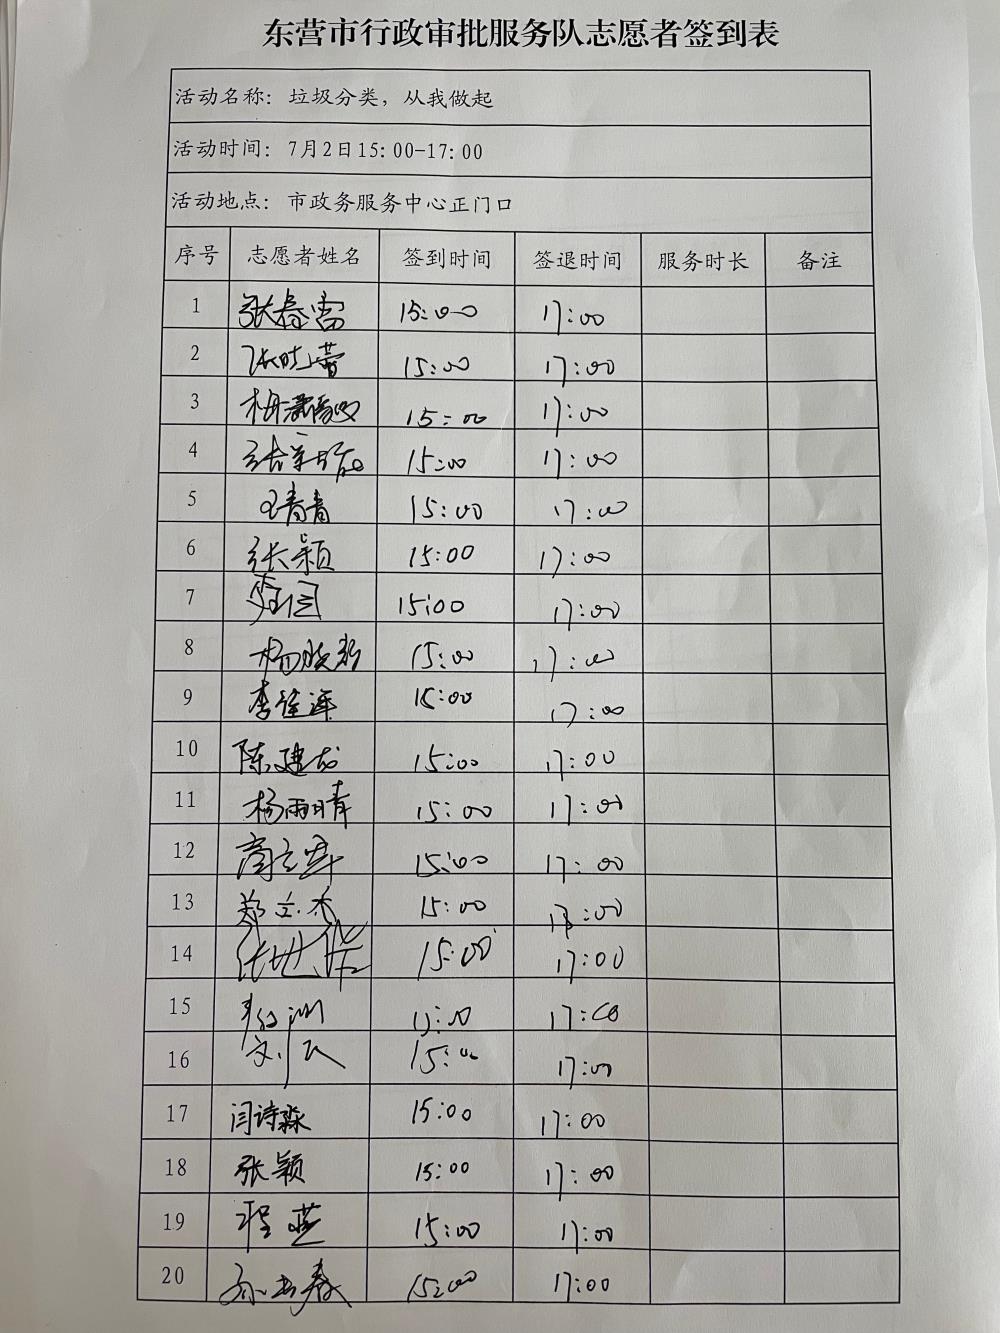 东营市行政审批服务队志愿者签到表
活动名称：垃圾分类，从我做起
活动时间：7月2日15:00-17:00
活动地点：市政务服务中心正门口
序号 志愿者姓名 签到时间 签退时间 服务时长 备注
1 张春雷 15:00 17:00
2 张晓蕾 15:00 17:00
3 15:00 17:00
4 15:00 17:00
5 王青青 15:00 17:00
6 张颖 15:00 17:00
7 15:00 17:00
8 杨晓新 15:00 17:00
9 15:00 17:00
10 陈建龙 15:00 17:00
11 杨雨晴 15:00 17:00
12 15:00 17:00
13 郑立杰 15:00 17:00
14 15:00 17:00
15 15:00 17:00
16 15:00 17:00
17 闫诗淼 15:00 17:00
18 张颖 15:00 17:00
19 程芝 15:00 17:00
20 15:00 17:00